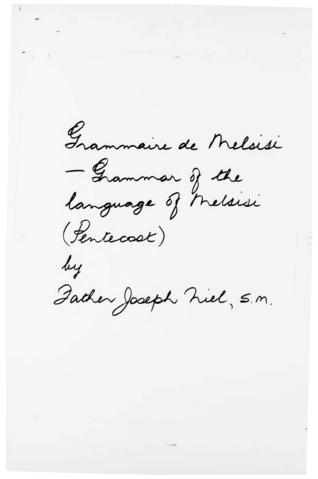 Grammaire de Melsisi
— Grammar of the
language of Melsisi
(Pentecost)
by
Father Joseph Niel, s.m.